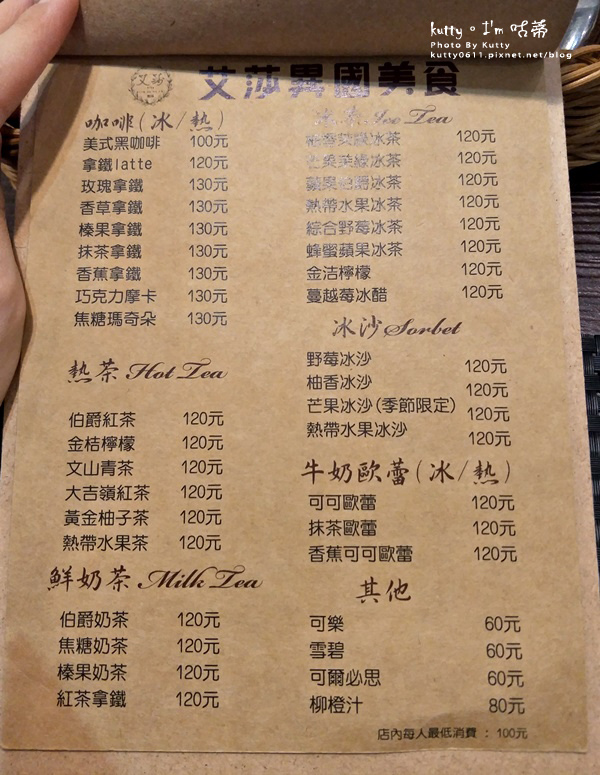 kutty。I'm 咕蒂
Photo By Kutty
kutty0611.pixnet.net/blog
艾莎
艾莎異國美食
咖啡(冰/熱)
美式黑咖啡 100元
拿鐵latte 120元
玫瑰拿鐵 130元
香草拿鐵 130元
榛果拿鐵 130元
抹茶拿鐵 130元
香蕉拿鐵 130元
巧克力摩卡 130元
焦糖瑪奇朵 130元
熱茶 Hot Tea
伯爵紅茶 120元
金桔檸檬 120元
文山青茶 120元
大吉嶺紅茶 120元
黃金柚子茶 120元
熱帶水果茶 120元
鮮奶茶 Milk Tea
伯爵奶茶 120元
焦糖奶茶 120元
榛果奶茶 120元
紅茶拿鐵 120元
冰茶 Ice Tea
綠冰茶 120元
綠冰茶 120元
冰茶 120元
熱帶水果冰茶 120元
綜合野莓冰茶 120元
蜂蜜蘋果冰茶 120元
金洁檸檬 120元
蔓越莓冰醋 120元
冰沙 Sorbet
野莓冰沙 120元
柚香冰沙 120元
芒果冰沙(季節限定) 120元
熱帶水果冰沙 120元
牛奶歐蕾(冰/熱)
可可歐蕾 120元
抹茶歐蕾 120元
香蕉可可歐蕾 120元
其他
可樂 60元
雪碧 60元
可爾必思 60元
柳橙汁 80元
店內每人最低消費 : 100元